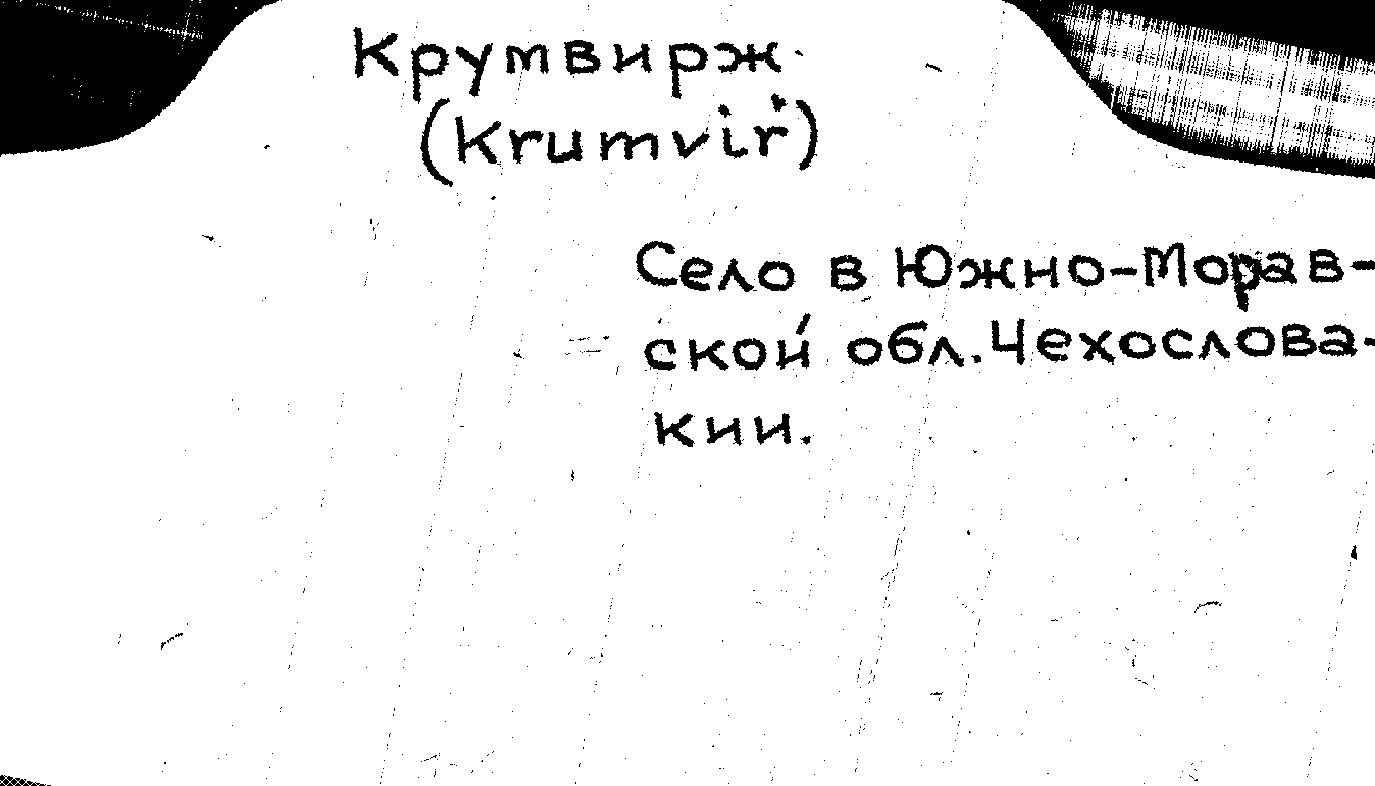 Крумвирж.
(Krumviř)
Село в Южно-Морав-
ской обл. Чехослова-
кии.